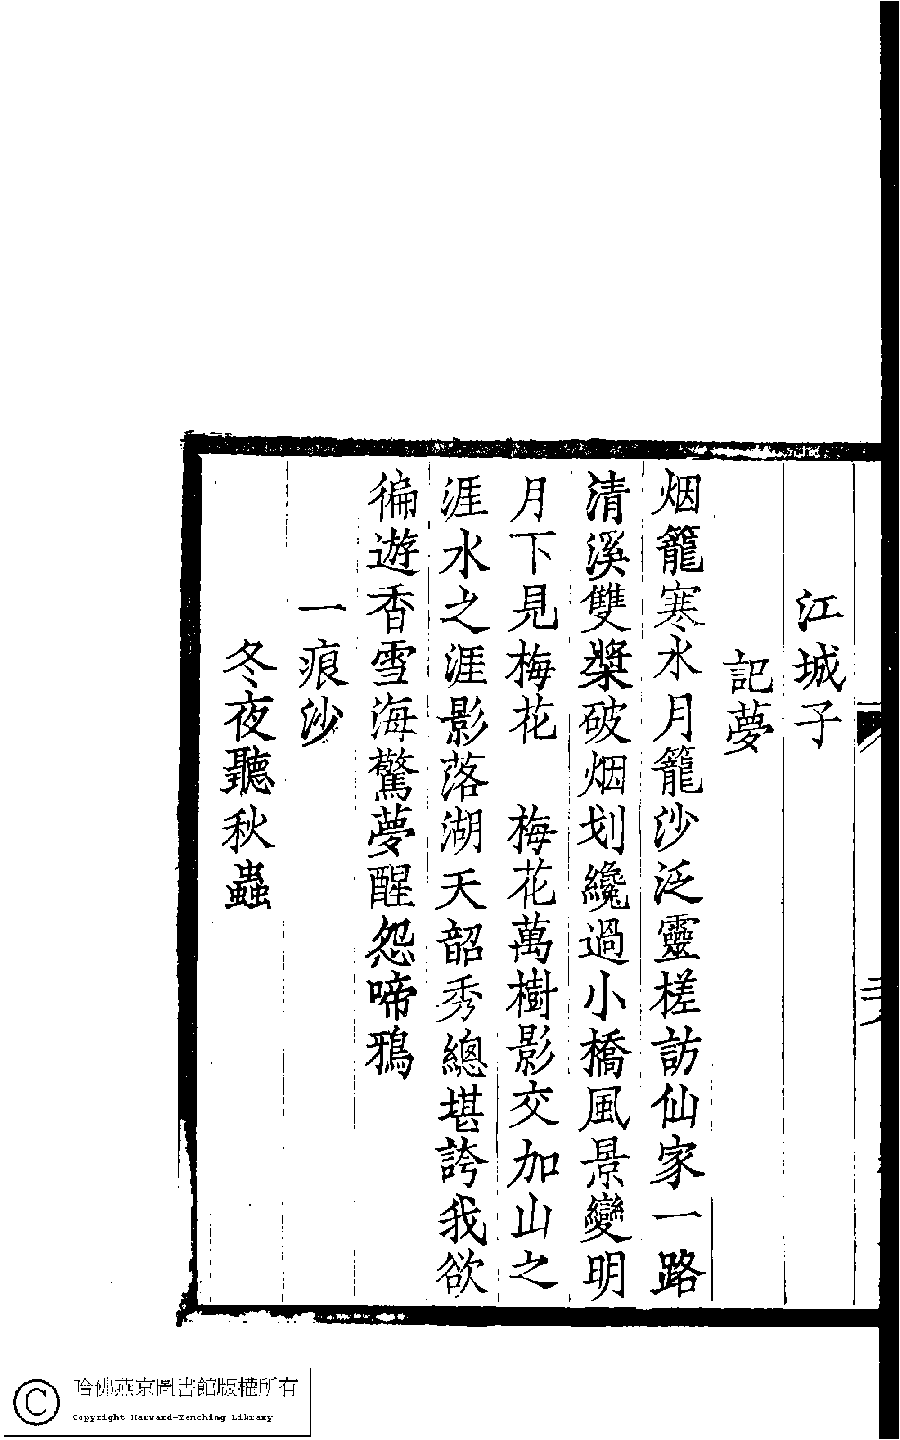 江城子
記夢
烟籠寒水月籠沙泛靈槎訪仙家一路
清溪雙槳破烟划纔過小橋風景變明
月下見梅花　梅花萬樹影交加山之
涯水之涯影落湖天韶秀總堪誇我欲
徧遊香雪海驚夢醒怨啼鴉
一痕沙
冬夜聽秋蟲
哈佛燕京圖書館版權所有
Copyright Harvard-Yenching Library